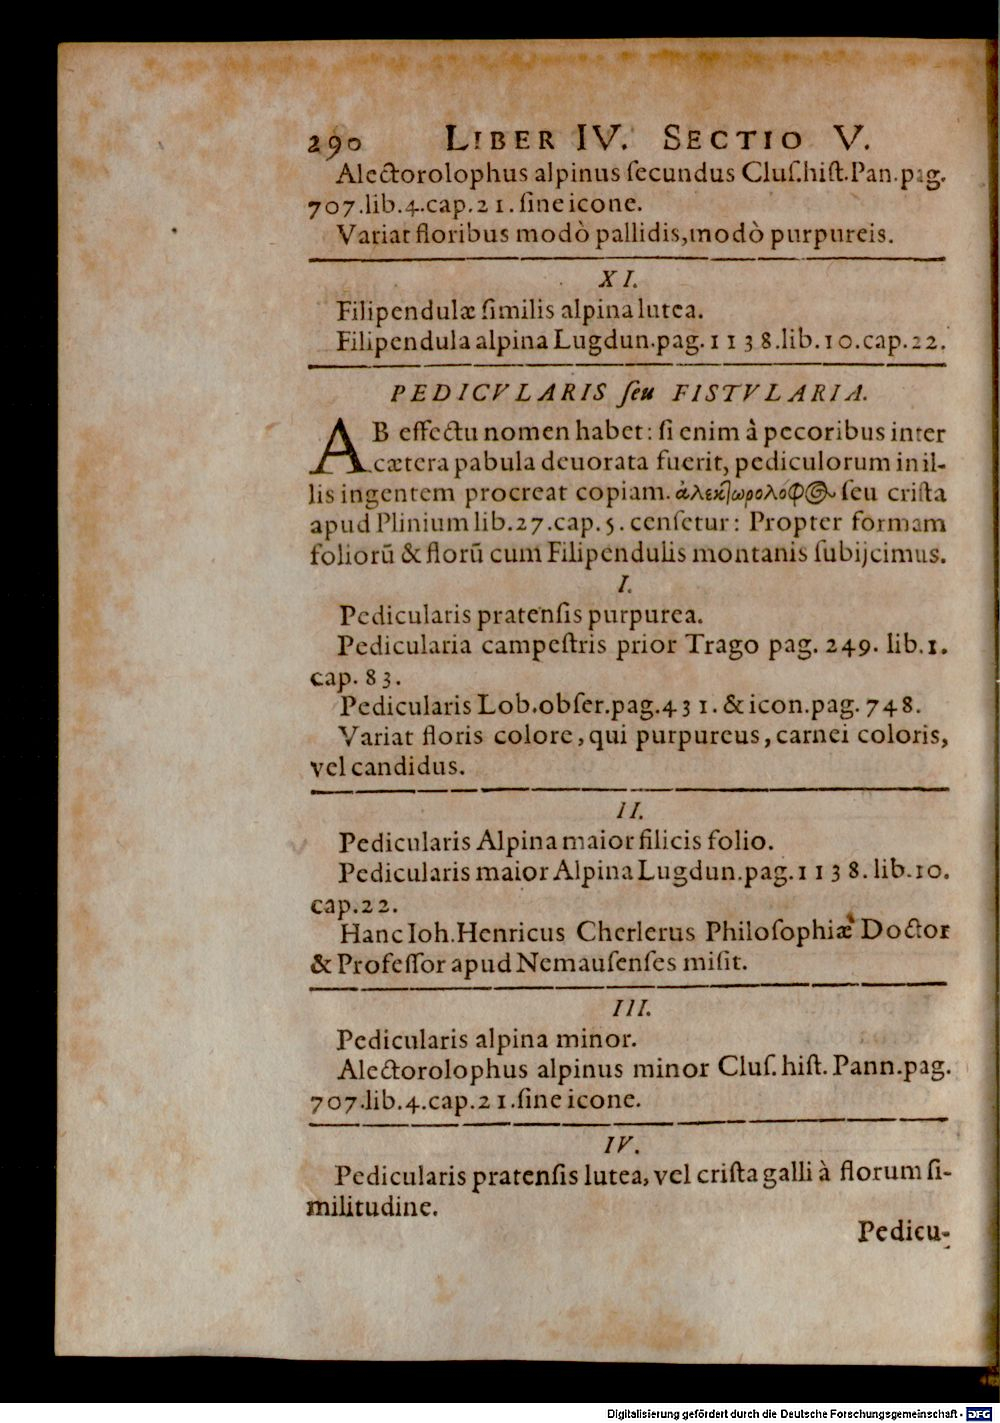 290 LIBER IV. SECTIO V.
Alectorolophus alpinus ſecundus Cluſ.hiſt.Pan.pag.
707.lib.4.cap.21.ſine icone.
Variat floribus modò pallidis,modò purpureis.
XI.
Filipendulæ ſimilis alpina lutea.
Filipendula alpina Lugdun.pag.1138.lib.10.cap.22.
PEDICVLARIS ſeu FISTVLARIA.
AB effectu nomen habet: ſi enim à pecoribus inter
cætera pabula deuorata fuerit, pediculorum in il-
lis ingentem procreat copiam. ἀλεκτωρολόφος ſeu criſta
apud Plinium lib.27.cap.5. cenſetur: Propter formam
foliorū & florū cum Filipendulis montanis ſubijcimus.
I.
Pedicularis pratenſis purpurea.
Pedicularia campeſtris prior Trago pag. 249. lib.1.
cap. 83.
Pedicularis Lob.obſer.pag.431. & icon.pag. 748.
Variat floris colore, qui purpureus, carnei coloris,
vel candidus.
II.
Pedicularis Alpina maior filicis folio.
Pedicularis maior Alpina Lugdun.pag.1138. lib.10.
cap.22.
Hanc Ioh.Henricus Cherlerus Philoſophiæ Doctor
& Profeſſor apud Nemauſenſes miſit.
III.
Pedicularis alpina minor.
Alectorolophus alpinus minor Cluſ. hiſt. Pann.pag.
707.lib.4.cap.21.ſine icone.
IV.
Pedicularis pratenſis lutea, vel criſta galli à florum ſi-
militudine.
Pedicu-
Digitalisierung gefördert durch die Deutsche Forschungsgemeinschaft - DFG